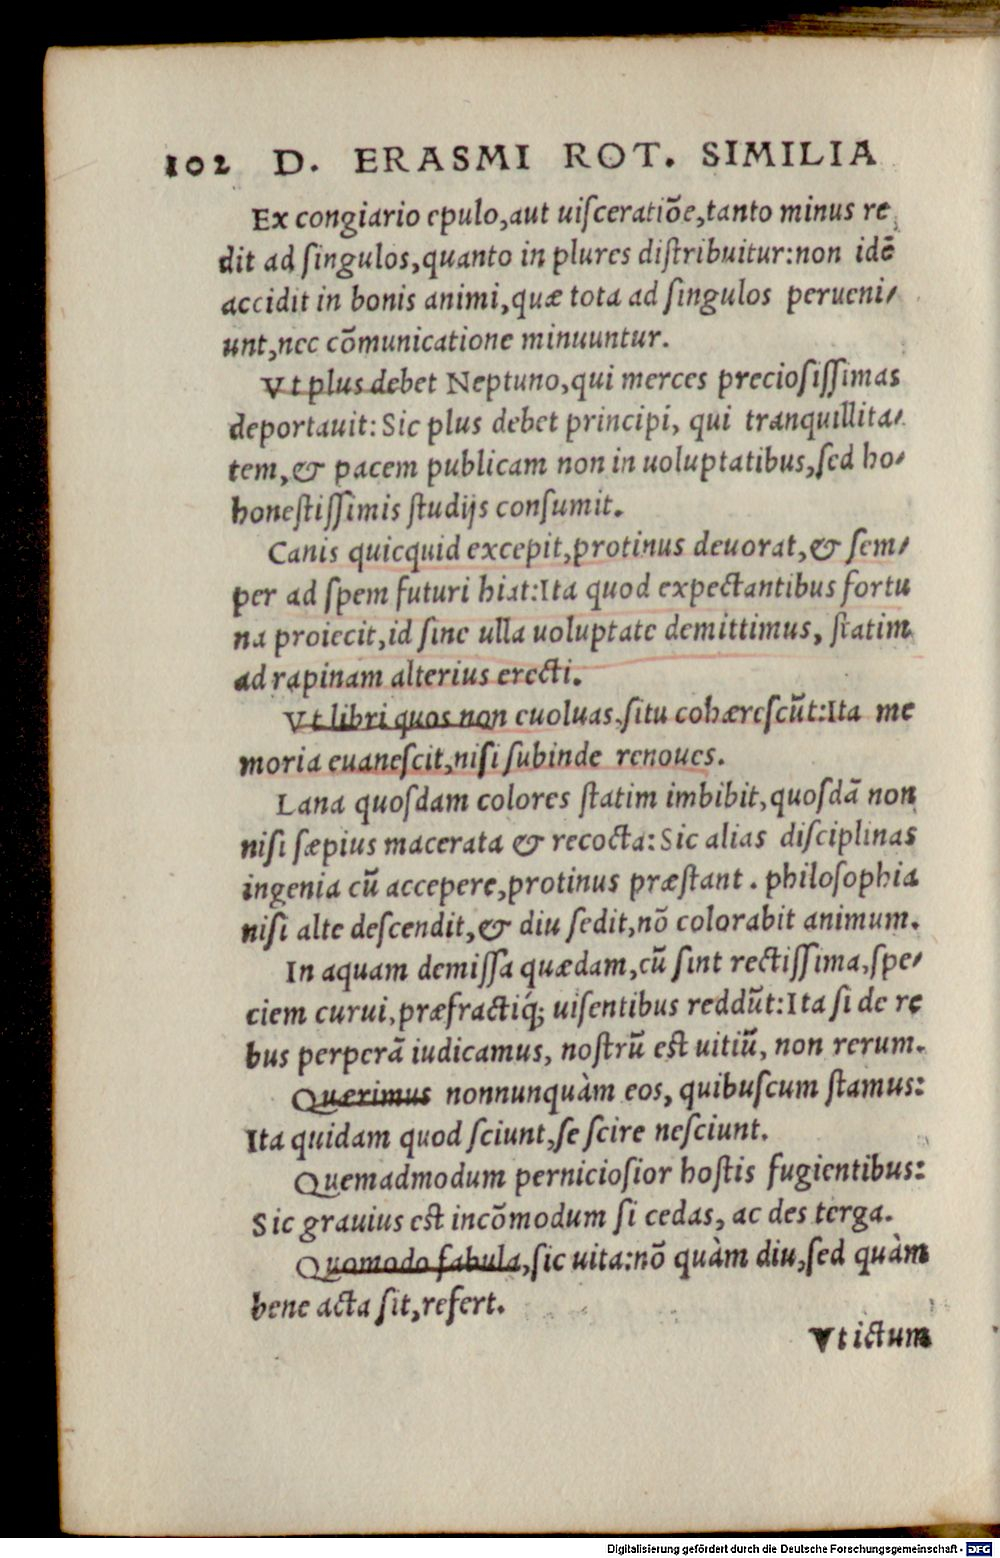 102 D. ERASMI ROT. SIMILIA
Ex congiario epulo,aut uiſceratiõe,tanto minus re
dit ad ſingulos,quanto in plures diſtribuitur:non idẽ
accidit in bonis animi,quæ tota ad ſingulos perueni/
unt,nec cõmunicatione minuuntur.
Vt plus debet Neptuno,qui merces precioſiſſimas
deportauit: Sic plus debet principi, qui tranquillita/
tem,& pacem publicam non in uoluptatibus,ſed ho/
honeſtiſſimis ſtudijs conſumit.
Canis quicquid excepit,protinus deuorat,& ſem/
per ad ſpem futuri hiat:Ita quod expectantibus fortu
na proiecit,id ſine ulla uoluptate demittimus, ſtatim
ad rapinam alterius erecti.
Vt libri quos non euoluas,ſitu cohæreſcũt:Ita me
moria euaneſcit,niſi ſubinde renoues.
Lana quoſdam colores ſtatim imbibit,quoſdã non
niſi ſæpius macerata & recocta: Sic alias diſciplinas
ingenia cũ accepere,protinus præſtant . philoſophia
niſi alte deſcendit,& diu ſedit,nõ colorabit animum.
In aquam demiſſa quædam,cũ ſint rectiſſima,ſpe/
ciem curui,præfractiq́; uiſentibus reddũt:Ita ſi de re
bus perperã iudicamus, noſtrũ eſt uitiũ, non rerum.
Quærimus nonnunquàm eos, quibuſcum ſtamus:
Ita quidam quod ſciunt,ſe ſcire neſciunt.
Quemadmodum pernicioſior hoſtis fugientibus:
Sic grauius eſt incõmodum ſi cedas, ac des terga.
Quomodo fabula,ſic uita:nõ quàm diu,ſed quàm
bene acta ſit,refert.
Vt ictum
Digitalisierung gefördert durch die Deutsche Forschungsgemeinschaft - DFG